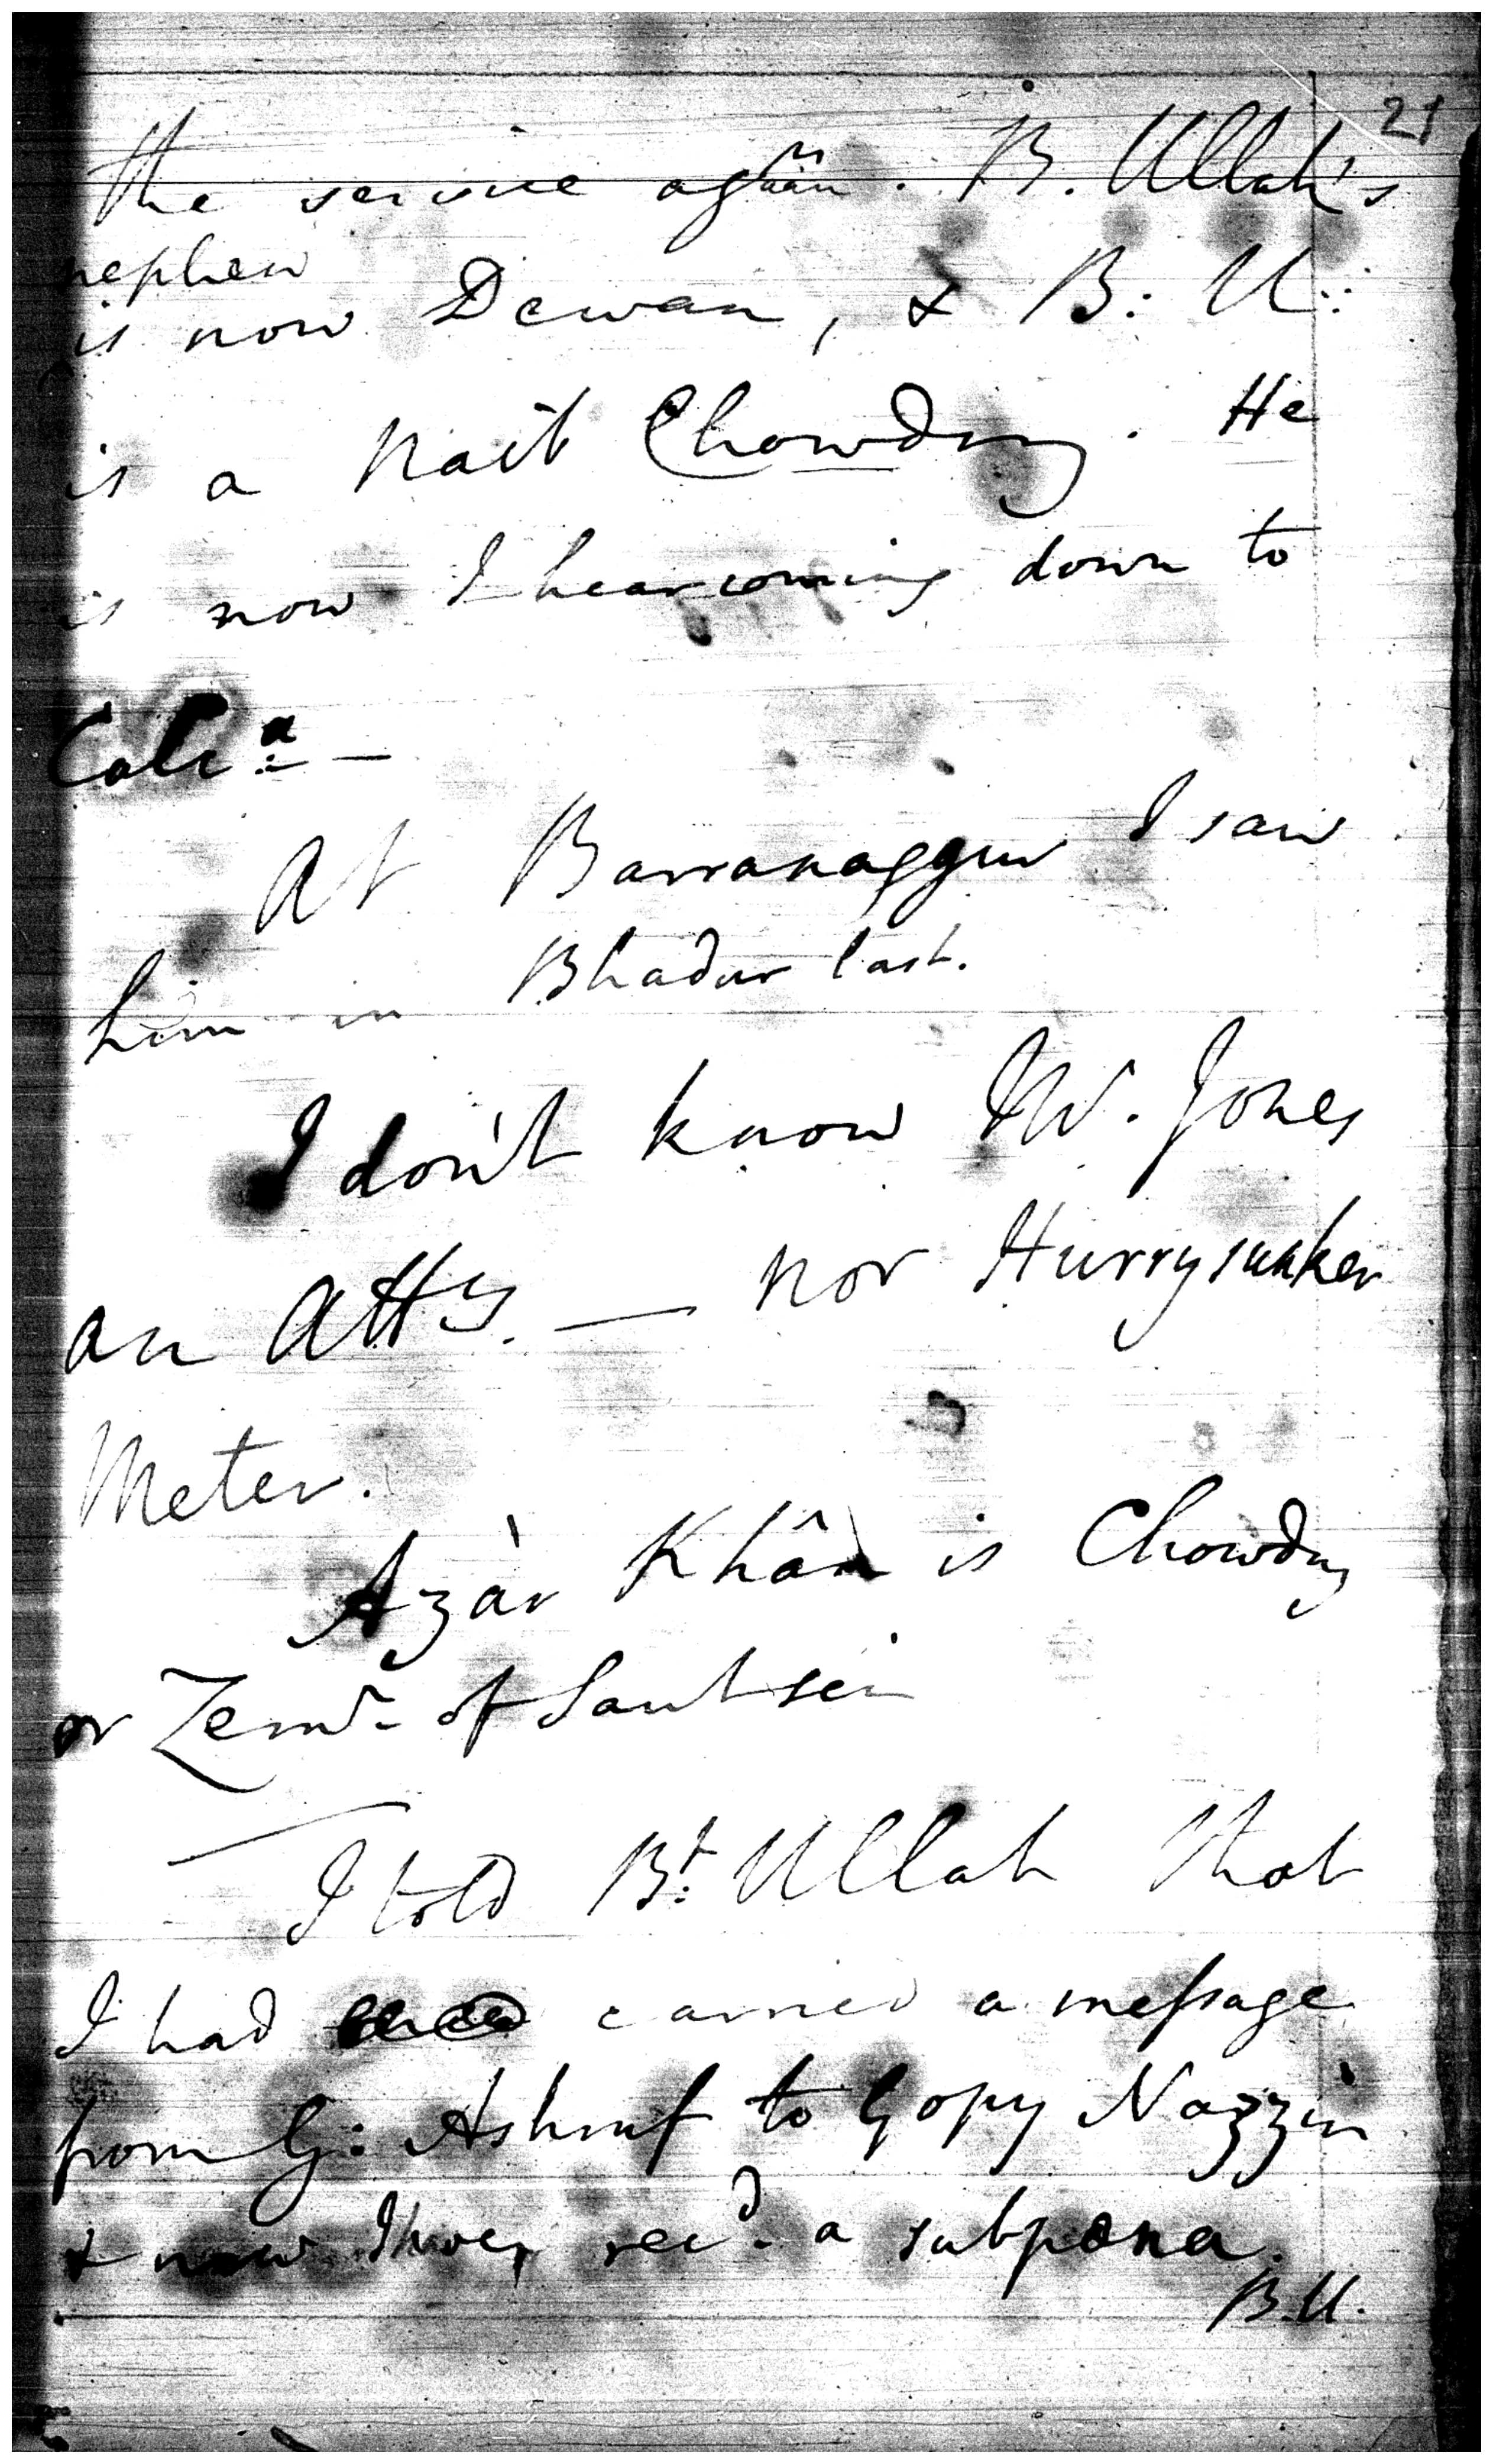 21
the service again. B. Ullah's
nephew
is now Dewan, & B: U::
is a Naib Chowdry. He
is now I hear coming down to
Calc:ª —
At Barranaggur I saw
him in Bhadur last.
I don't know W. Jones
an Atty. — nor Hurrysunker
Meter.
Azàr Khân is Chowdry
or Zemr. of
I told Bt: Ullah that
I had carried a message
from G: Ashruf to Gopy Nazzir
& now I have recd. a subpœna.
B.U.